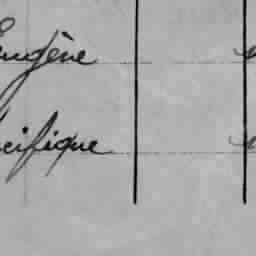 Eugène
acifique